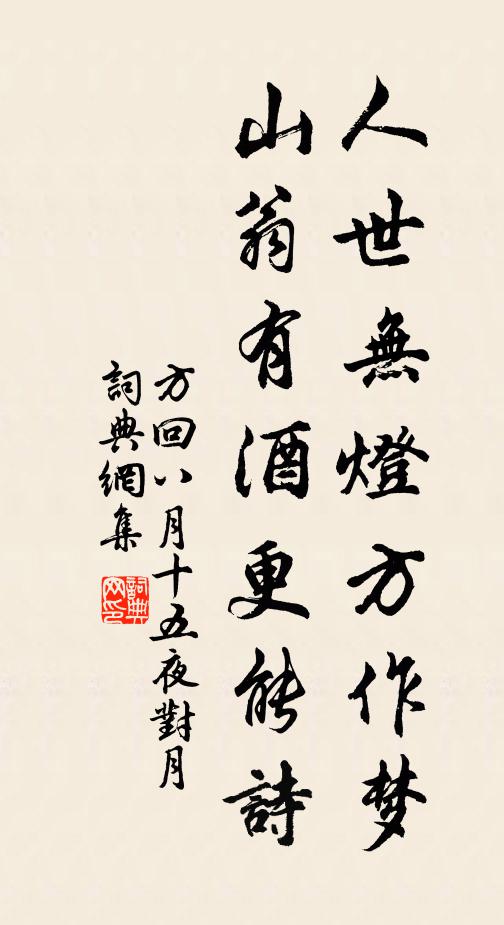 人世無燈方作梦
山翁有酒更能詩
方回八月十五夜對月
詞典網集
詞典網印